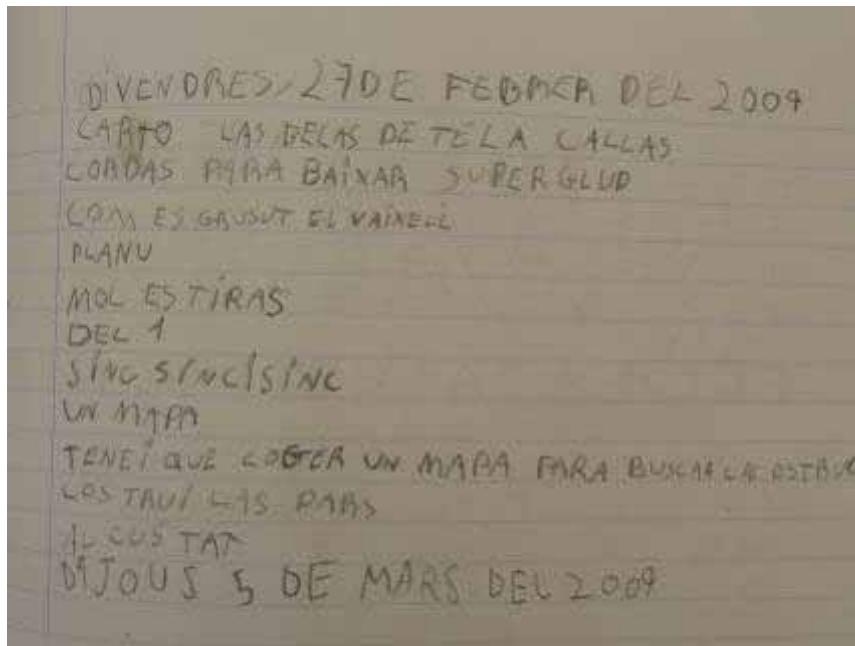 DIVENDRES, 27 DE FEBRER DEL 2009
CARTO LAS BELAS DE TELA CALLAS
CORDAS PARA BAIXAR SUPERGLUD
COM ES GRUSUT EL VAIXELL
PLANU
MOL ESTIRAS
DEL 1
SINC SINC I SINC
UN MAPA
TENEI QUE COGER UN MAPA PARA BUSCAR LA
LAS PARS
AL CUSTAT
DIJOUS 5 DE MARS DEL 2009